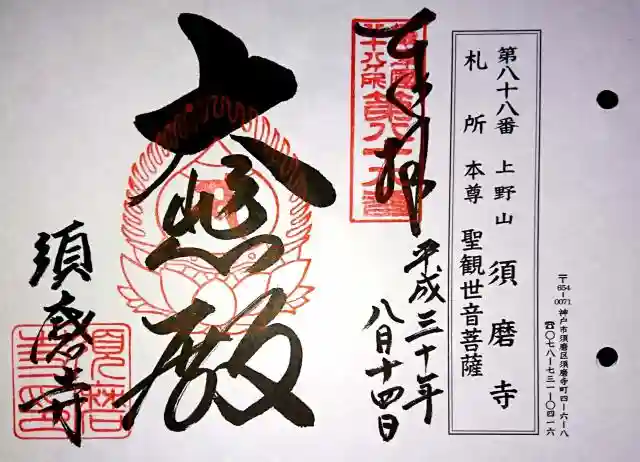 〒654-0071 神戸市須磨区須磨寺町四-六-八
☎〇七八-七三一-〇四一六
第八十八番 上野山 須磨寺
札所本尊 聖観世音菩薩
奉拝
平成三十年
八月十四日
大悲殿
須磨寺